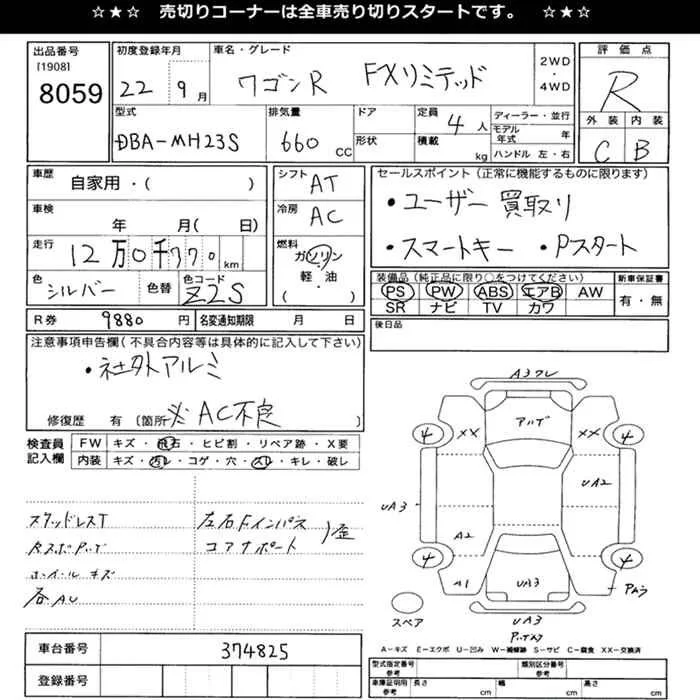 ☆★☆ 売切りコーナーは全車売り切りスタートです。 ☆★☆
出品番号 初度登録年月 車名・グレード 2WD・4WD 評価点
[1908] 8059 22 9月 ワゴンR FXリミテッド R
型式 排気量 ドア 定員 ディーラー・並行 外装 内装
DBA-MH23S 660 CC 形状 4人 積載 kg モデル年式 年 ハンドル 左・右 C B
車歴 自家用・( ) シフト AT セールスポイント(正常に機能するものに限ります)
車検 年 月(日) 冷房 AC ・ユーザー買取り
走行 12万0千770km 燃料 ガソリン・軽・油 ・スマートキー ・Pスタート
色 シルバー 色替 色コード Z2S 装備品(純正品に限り○をつけてください) 新車保証書
PS PW ABS エアB AW 有・無
SR ナビ TV カワ
R券 9880円 名変通知期限 月 日 後日品
注意事項申告欄(不具合内容等は具体的に記入して下さい)
・社外アルミ
修復歴 有 [箇所 ※AC不良
検査員記入欄 FW キズ・飛石・ヒビ割・リペア跡・X要
内装 キズ・汚レ・コゲ・穴・スレ・キレ・破レ
スタッドレスT 左右Fインパネ 歪
コアサポート
ホイールキズ
各AU
A3ワレ
アルT
4 XX XX 4
UA3 UA2
A2
4 4
A1 UA3
スペア UA3
A-キズ E-エクボ U-凹み W-補修跡 S-サビ C-腐食 XX-交換済
車台番号 374825
登録番号
型式指定番号 参考 類別区分番号 参考
車庫証明用 参考 長さ cm 幅 cm 高さ cm